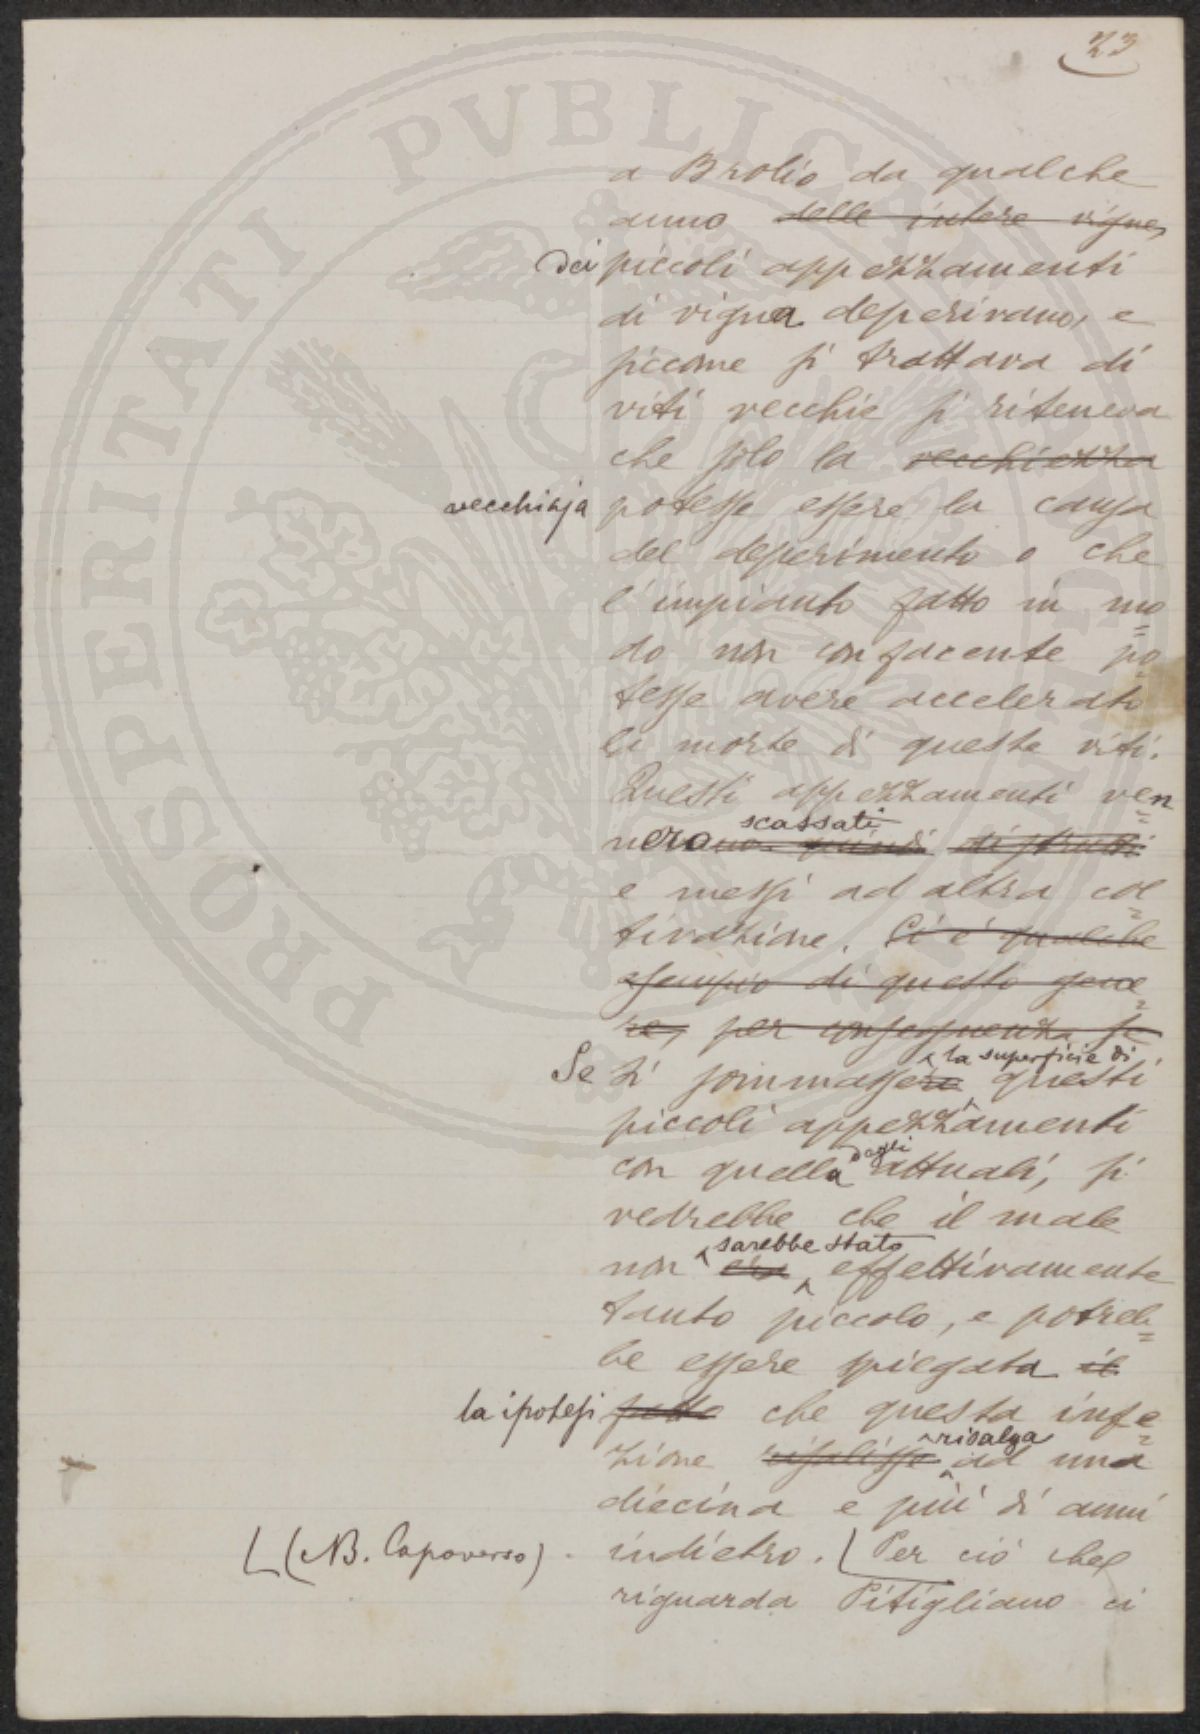 23
a Brolio da qualche
anno delle intere vigne,
dei piccoli appezzamenti
di vigna deperivano, e
siccome si trattava di
viti vecchie si riteneva
che solo la vecchiezza
vecchiaja potesse essere la causa
del deperimento o che
l'impianto fatto in mo=
do non confacente po=
tesse avere accelerato
la morte di queste viti.
Questi appezzamenti ven=
scassati
nero quindi distrutti
e messi ad altra col=
tivazione. Ci è qualche
esempio di questo gene=
re, per conseguenza se
la superficie di
Se si sommassero questi
piccoli appezzamenti
dagli
con quella attuali, si
vedrebbe che il male
sarebbe stato
non era effettivamente
tanto piccolo, e potreb=
be essere spiegata il
la ipotesi fatto che questa infe=
risalga
zione risalisse ad una
diecina e più di anni
(NB. Capoverso) indietro. Per ciò che
riguarda Pitigliano ci
PROSPERITATI PVBLICAE AVGENDAE